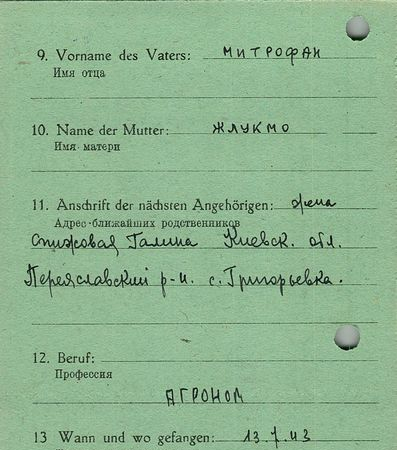 9. Vorname des Vaters: МИТРОФАН
Имя отца
10. Name der Mutter: ЖЛУКМО
Имя матери
11. Anschrift der nächsten Angehörigen: жена
Адрес ближайших родственников
Галина Киевск. обл.
Переяславский р-н. с. Григорьевка.
12. Beruf:
Профессия
АГРОНОМ
13 Wann und wo gefangen: 13.7.43